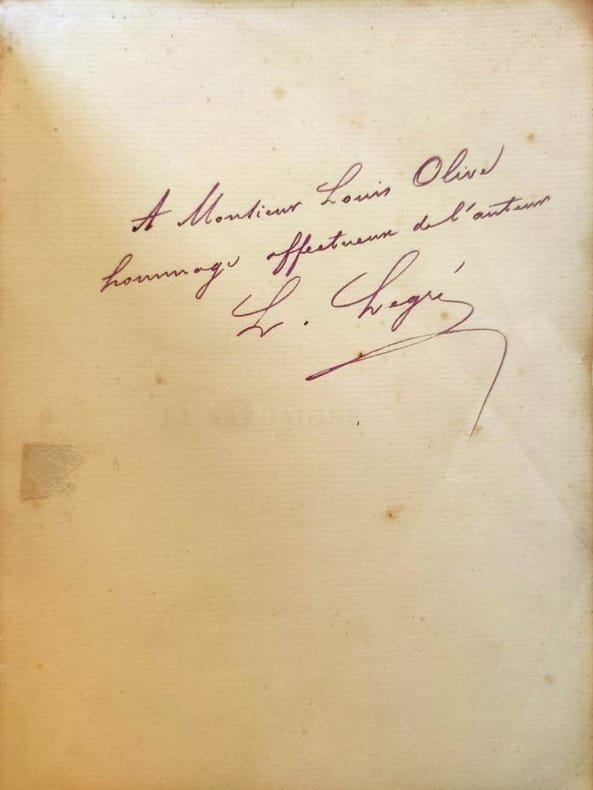 A Monsieur Louis Olive
hommage affectueux de l'auteur
L. Legré
LA SARDAIGNE